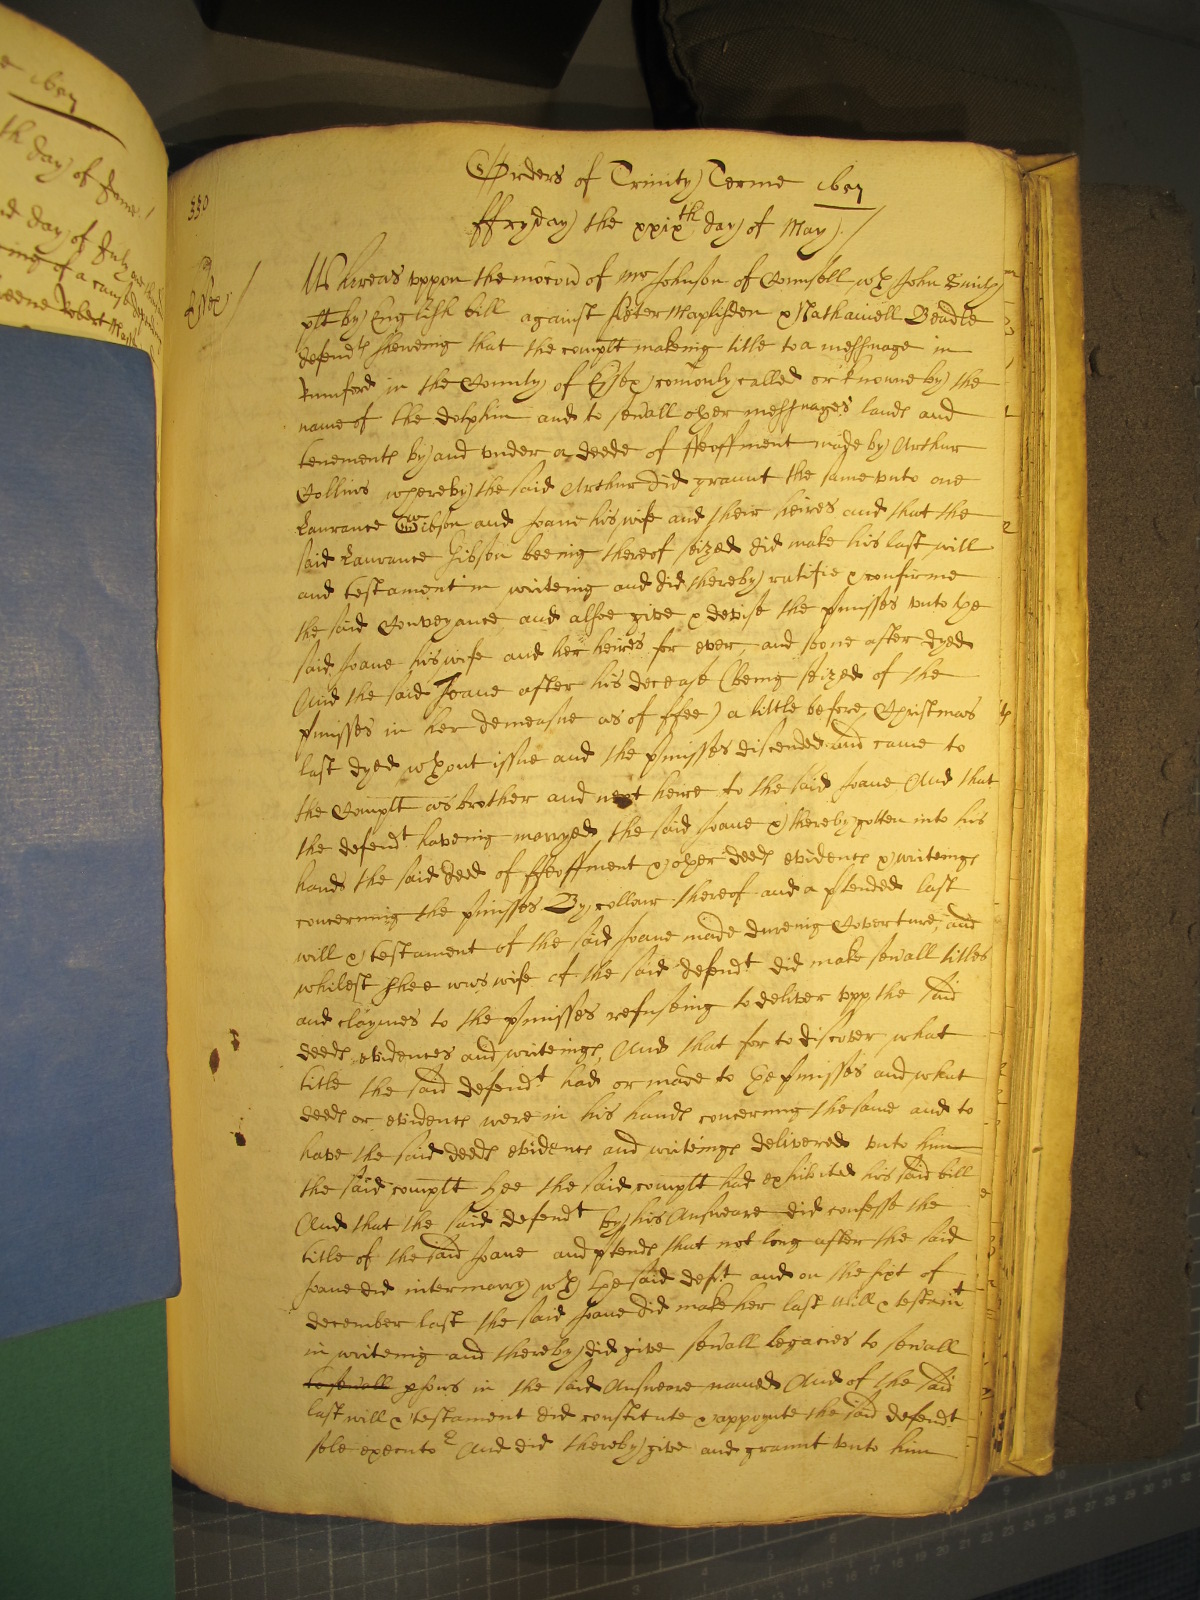 330
Orders of Trinity Terme 1607
ffryday the xxixth day of May
Essex
Whereas uppon the mocion of Mr Johnson of Counsell wth John
plt by English bill against Peter Maplisden & Nathaniell Beadle
defendts shewing that the complt makeing title to a messuage in
Rumford in the County of Essex comonly called or knowne by the
name of the dolphin and to sevall other messuages lands and
tenements by and under a deede of ffeoffment made by Arthur
Collins whereby the said Arthur did graunt the same unto one
Laurance Gibson and Joane his wife and their heires and that the
said Laurance Gibson beeing thereof seized did make his last will
and testament in writeing and did thereby ratifie & confirme
the said Conveyance and alsoe give & devise the pmisses unto the
said Joane his wife and her heires for ever and soone after dyed
And the said Joane after his decease (being seized of the
pmisses in her demeasne as of ffee) a little before Christmas
last dyed wthout issue and the pmisses discended and came to
the Complt as brother and next heire to the said Joane And that
the defendt haveing marryed the said Joane & thereby gotten into his
hands the said deed of ffeoffment & other deeds evidences & writeings
concerning the pmisses By collour thereof and a ptended last
will & testament of the said Joane made dureing Coverture and
whilest shee was wife of the said defendt did make sevall titles
and claymes to the pmisses refuseing to deliver upp the said
deeds evidences and writeings And that for to discover what
title the said defendt had or made to the pmisses and what
deeds or evidences were in his hands concerning the same and to
have the said deeds evidences and writeings delivered unto him
the said complt hee the said complt had exhibited his said bill
And that the said defendt by his Answeare did confesse the
title of the said Joane and ptends that not long after the said
Joane did intermarry wth the said deft and on the sixt of
december last the said Joane did make her last will & testamt
in writeing and thereby did give sevall legacies to sevall
to sevall psons in the said Answeare named And of the said
last will & testament did constitute & appoynte the said defendt
sole executor And did thereby give and graunt unto him